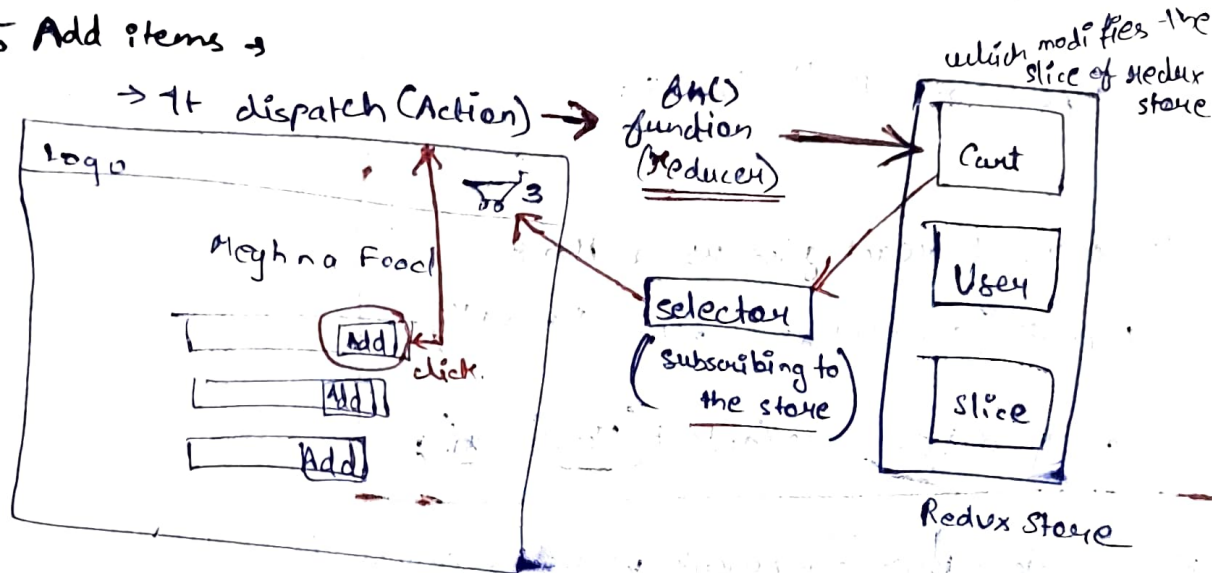 Add items →
→ It dispatch (Action) →
fn()
function
(reducer)
which modifies the
slice of redux
store
Logo
3
Meghna Food
Add
click.
Add
Add
selector
(subscribing to
the store)
Cart
User
Slice
Redux Store